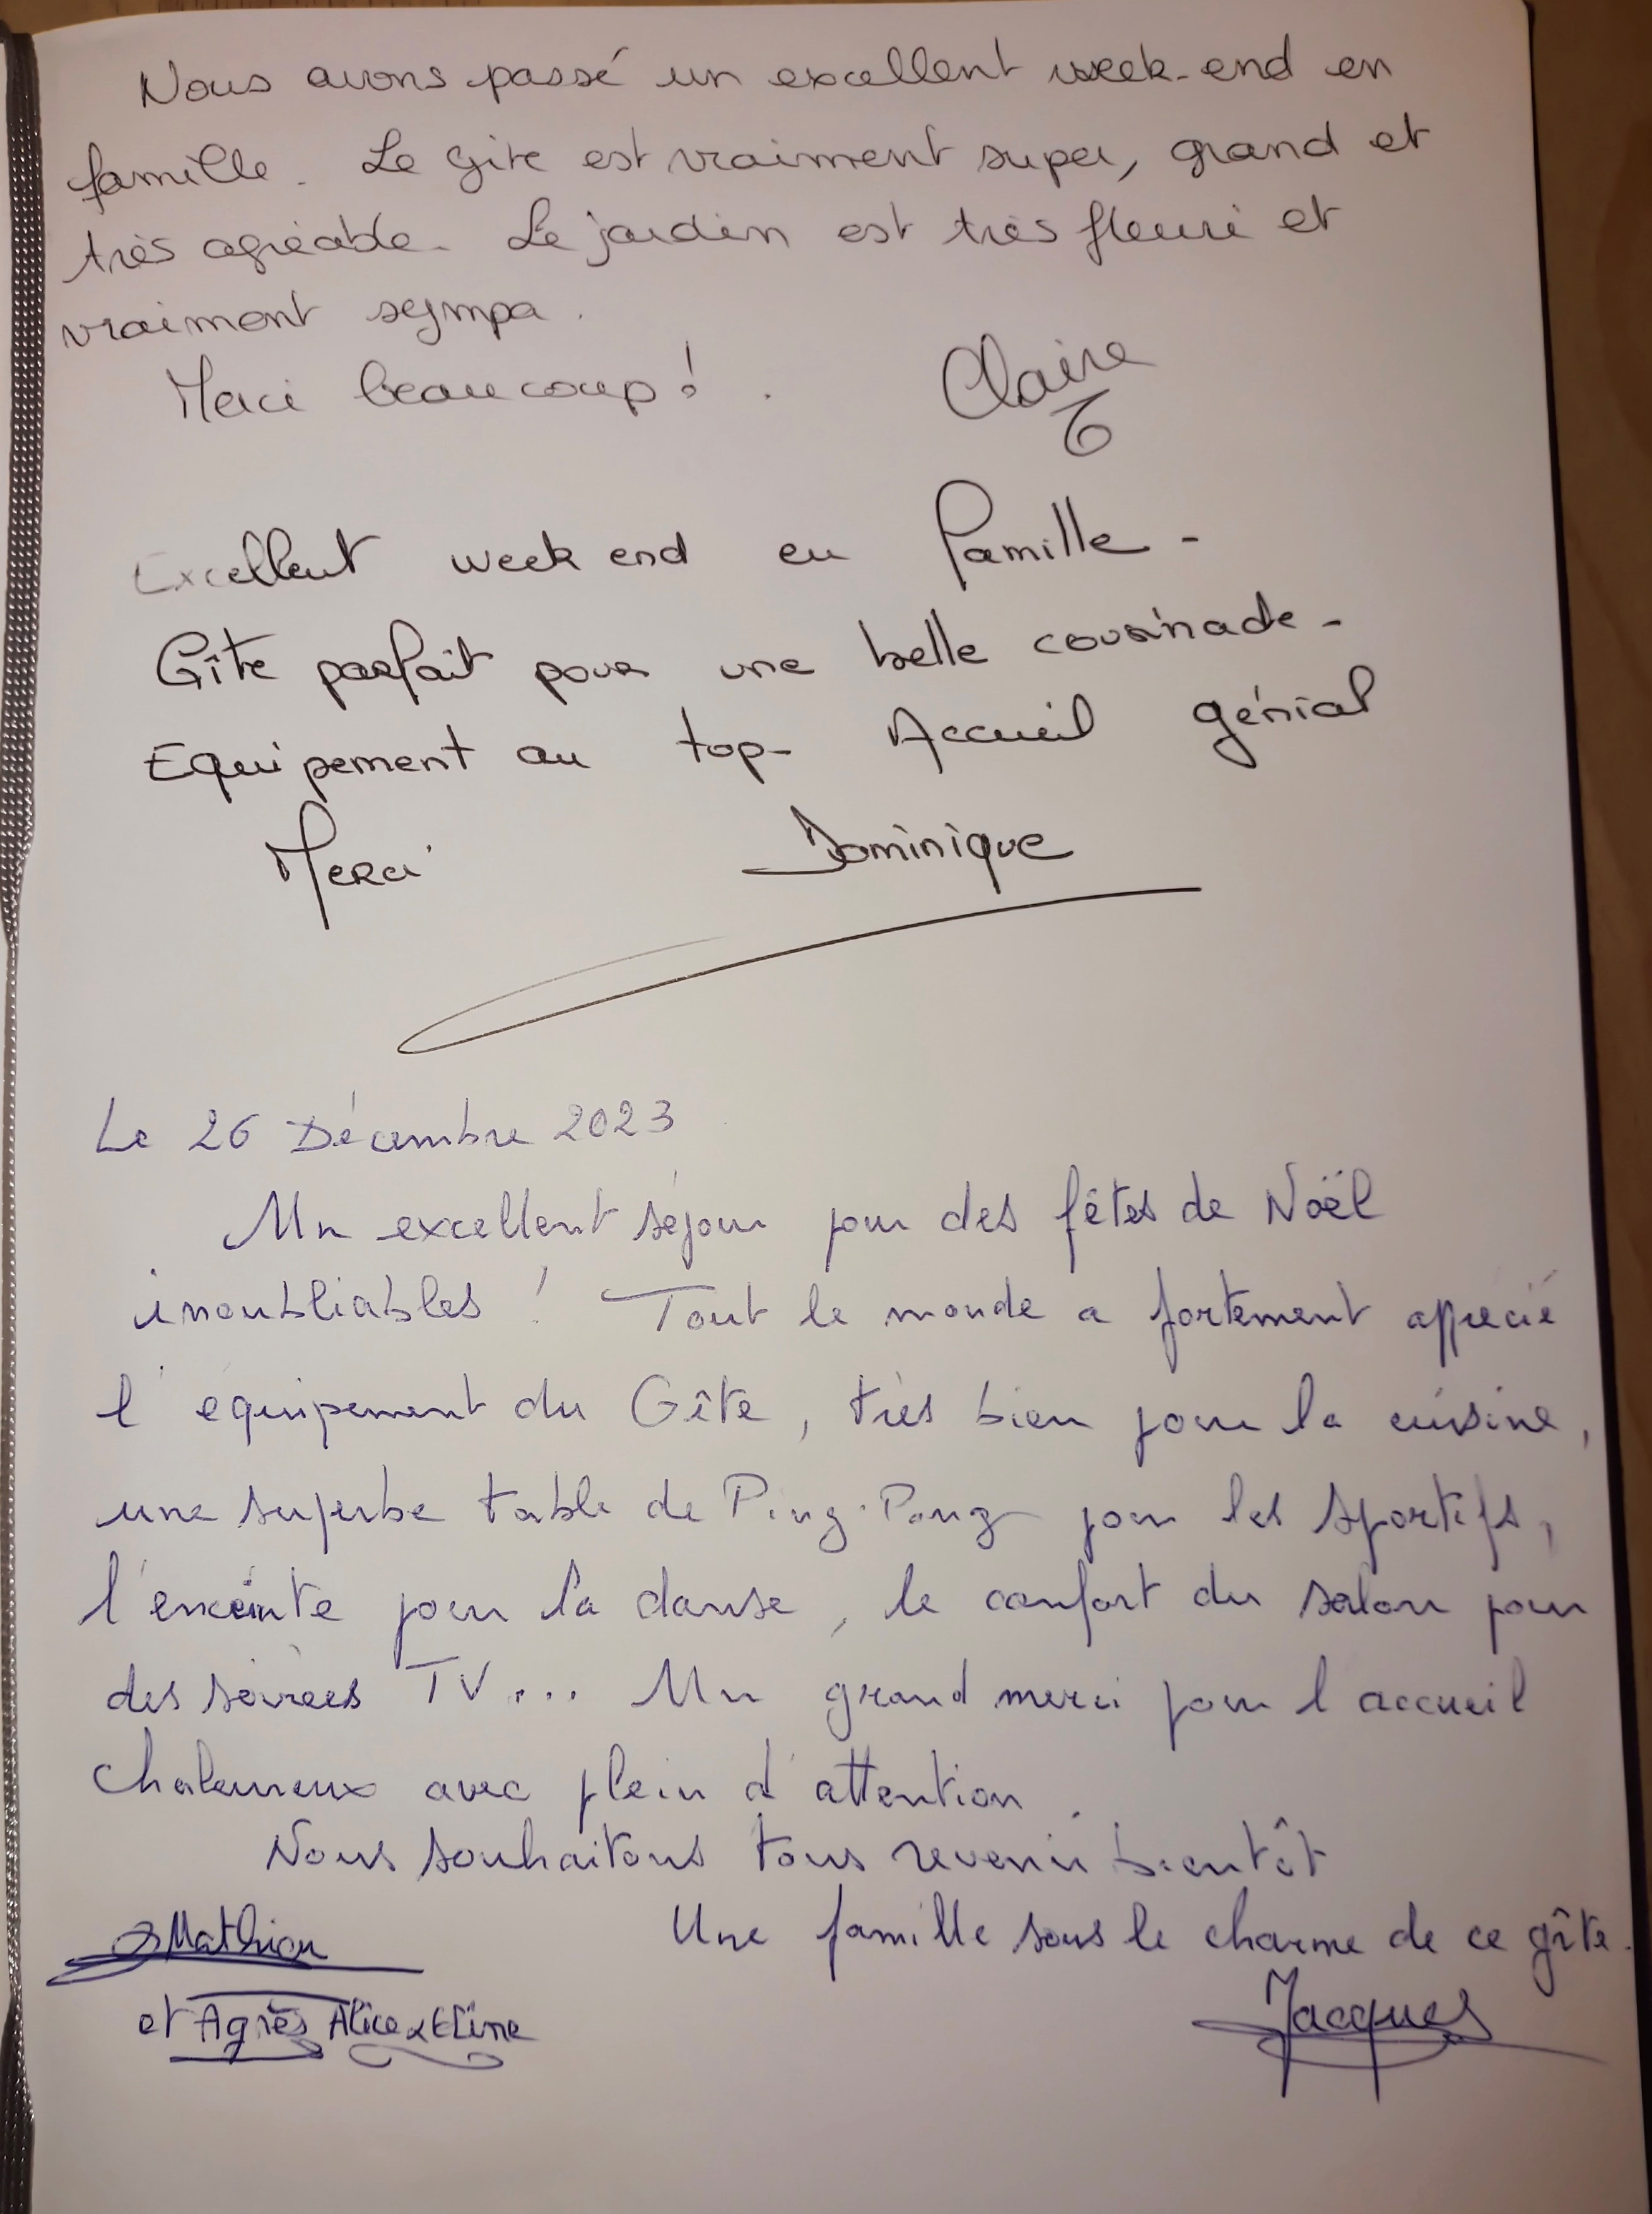 Nous avons passé un excellent week-end en
famille. Le gite est vraiment super, grand et
très agréable. Le jardin est très fleuri et
vraiment sympa.
Merci beaucoup !
Claire
Excellent week end en famille -
Gîte parfait pour une belle cousinade -
Equipement au top - Accueil génial
Merci Dominique
Le 26 Décembre 2023
Un excellent séjour pour des fêtes de Noël
inoubliables ! Tout le monde a fortement apprécié
l'équipement du Gîte, très bien pour la cuisine,
une superbe table de Ping-Pong pour les sportifs,
l'enceinte pour la danse, le confort du salon pour
des soirées TV... Un grand merci pour l'accueil
chaleureux avec plein d'attention.
Nous souhaitons tous revenir bientôt
Une famille sous le charme de ce gîte.
Mathieu
Jacques
et Agnès Alice & Eline